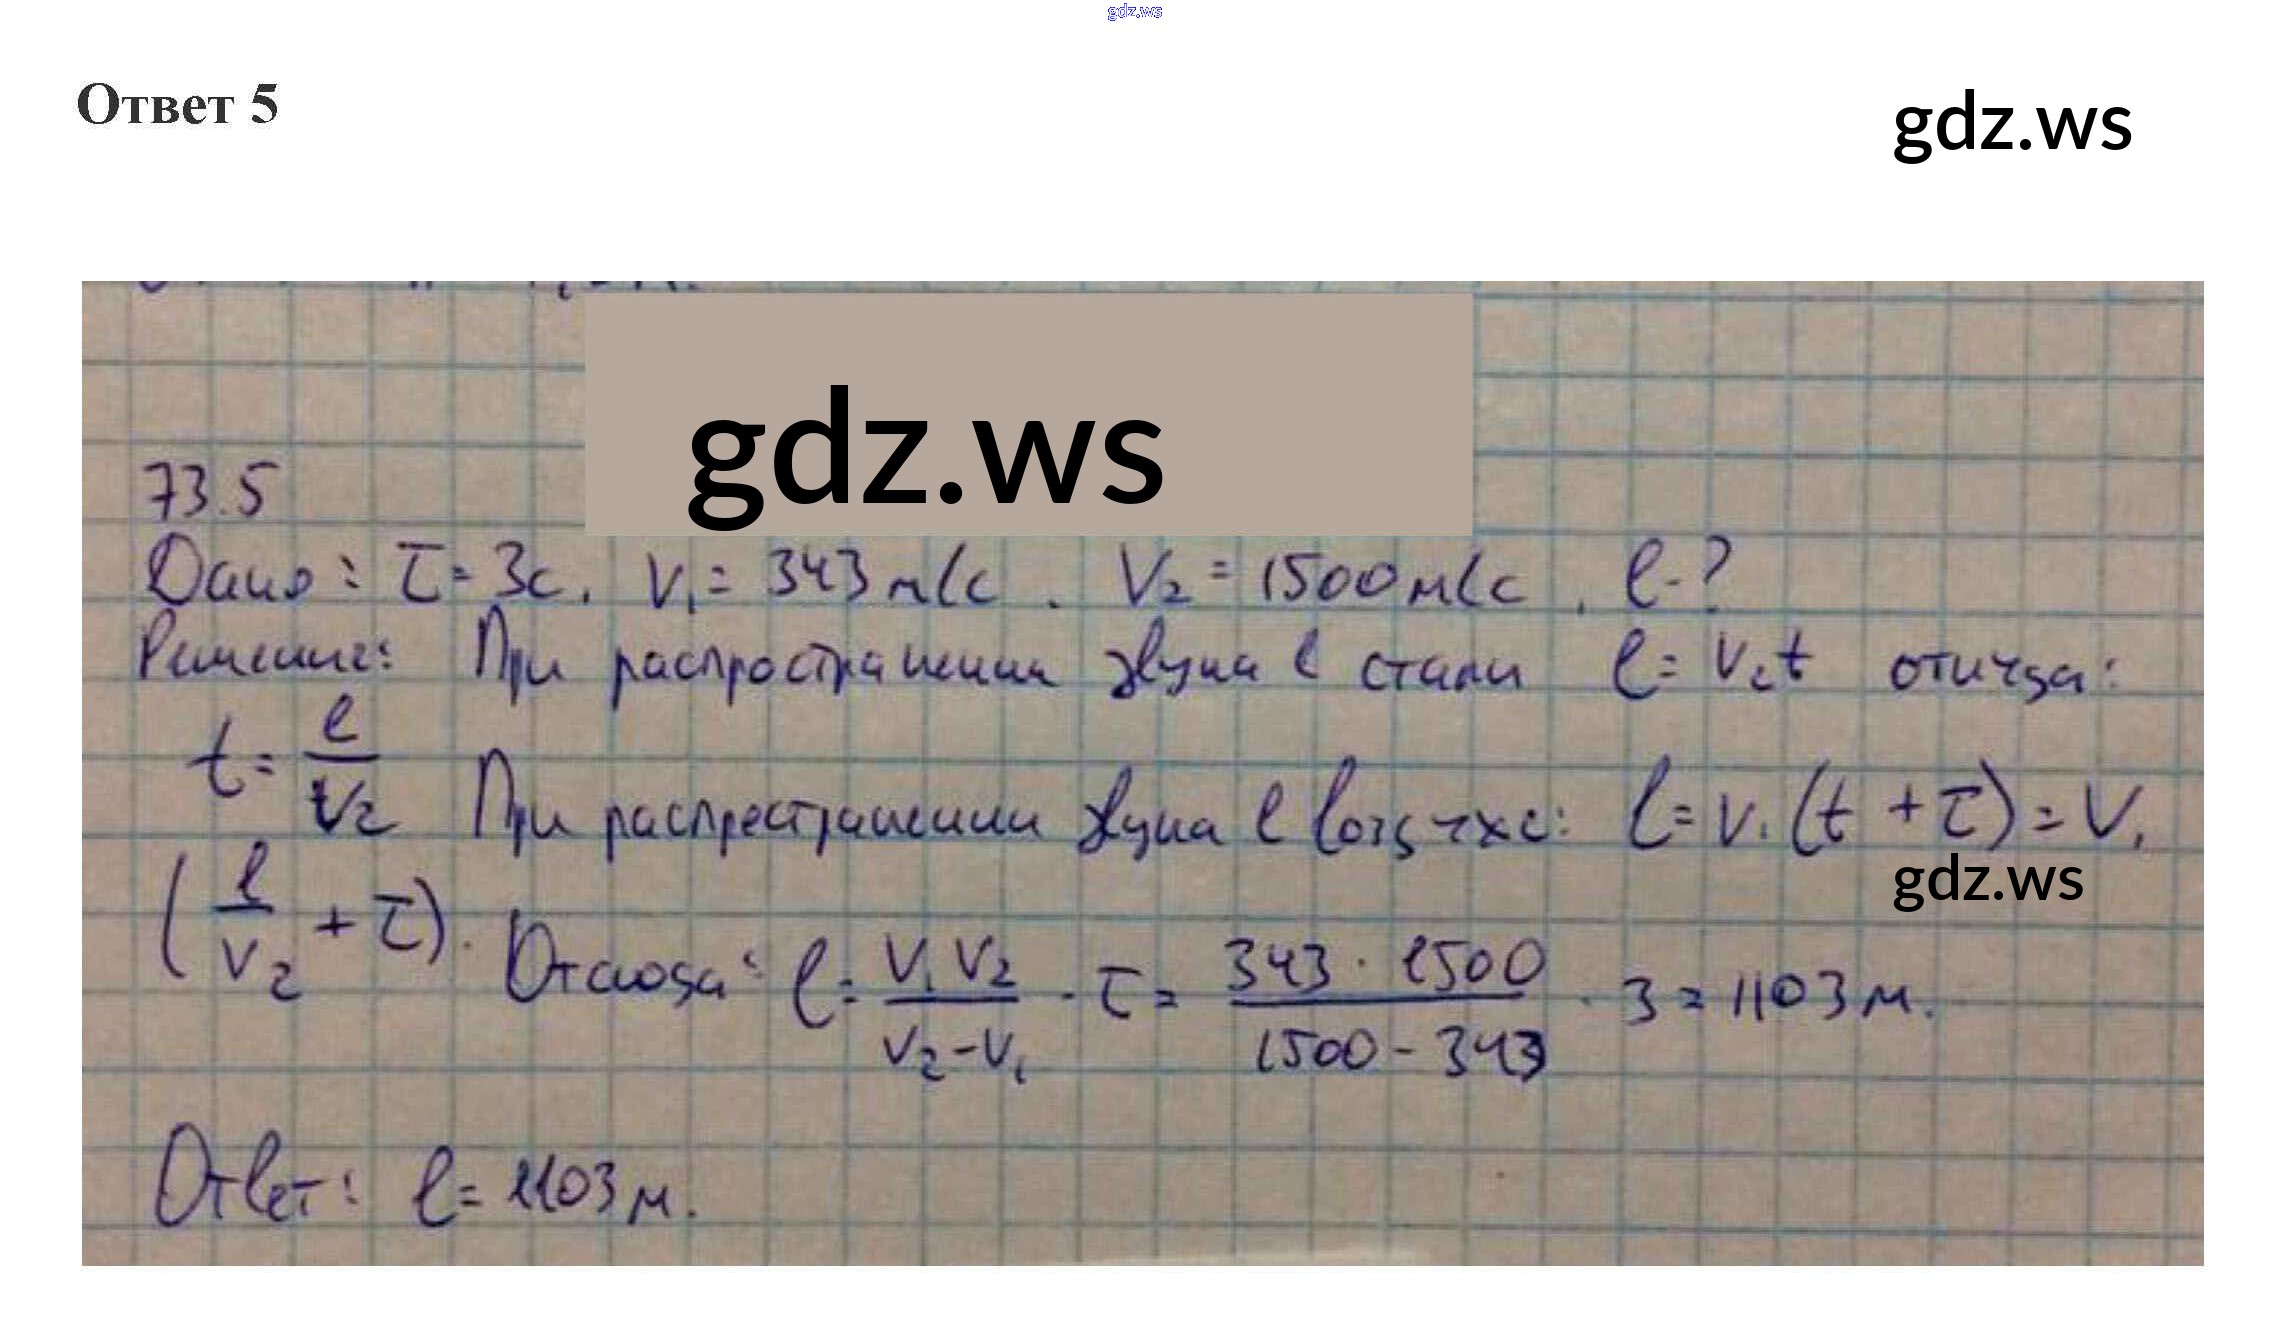 gdz.ws
Ответ 5
gdz.ws
gdz.ws
73.5
Дано: τ = 3с. V₁ = 343 м/с. V₂ = 1500 м/с, l - ?
Решение: При распространении звука в стали l = V₂t откуда:
t = l/V₂ При распрестранении звука в воздухе: l = V₁(t + τ) = V₁
gdz.ws
(l/V₂ + τ). Отсюда: l = V₁V₂/(V₂ - V₁) · τ = 343 · 1500/(1500 - 343) · 3 = 1103 м.
Ответ: l = 1103 м.